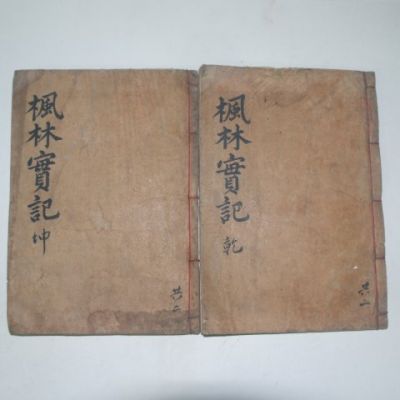 楓林實記
乾
共二
楓林實記
坤
共二